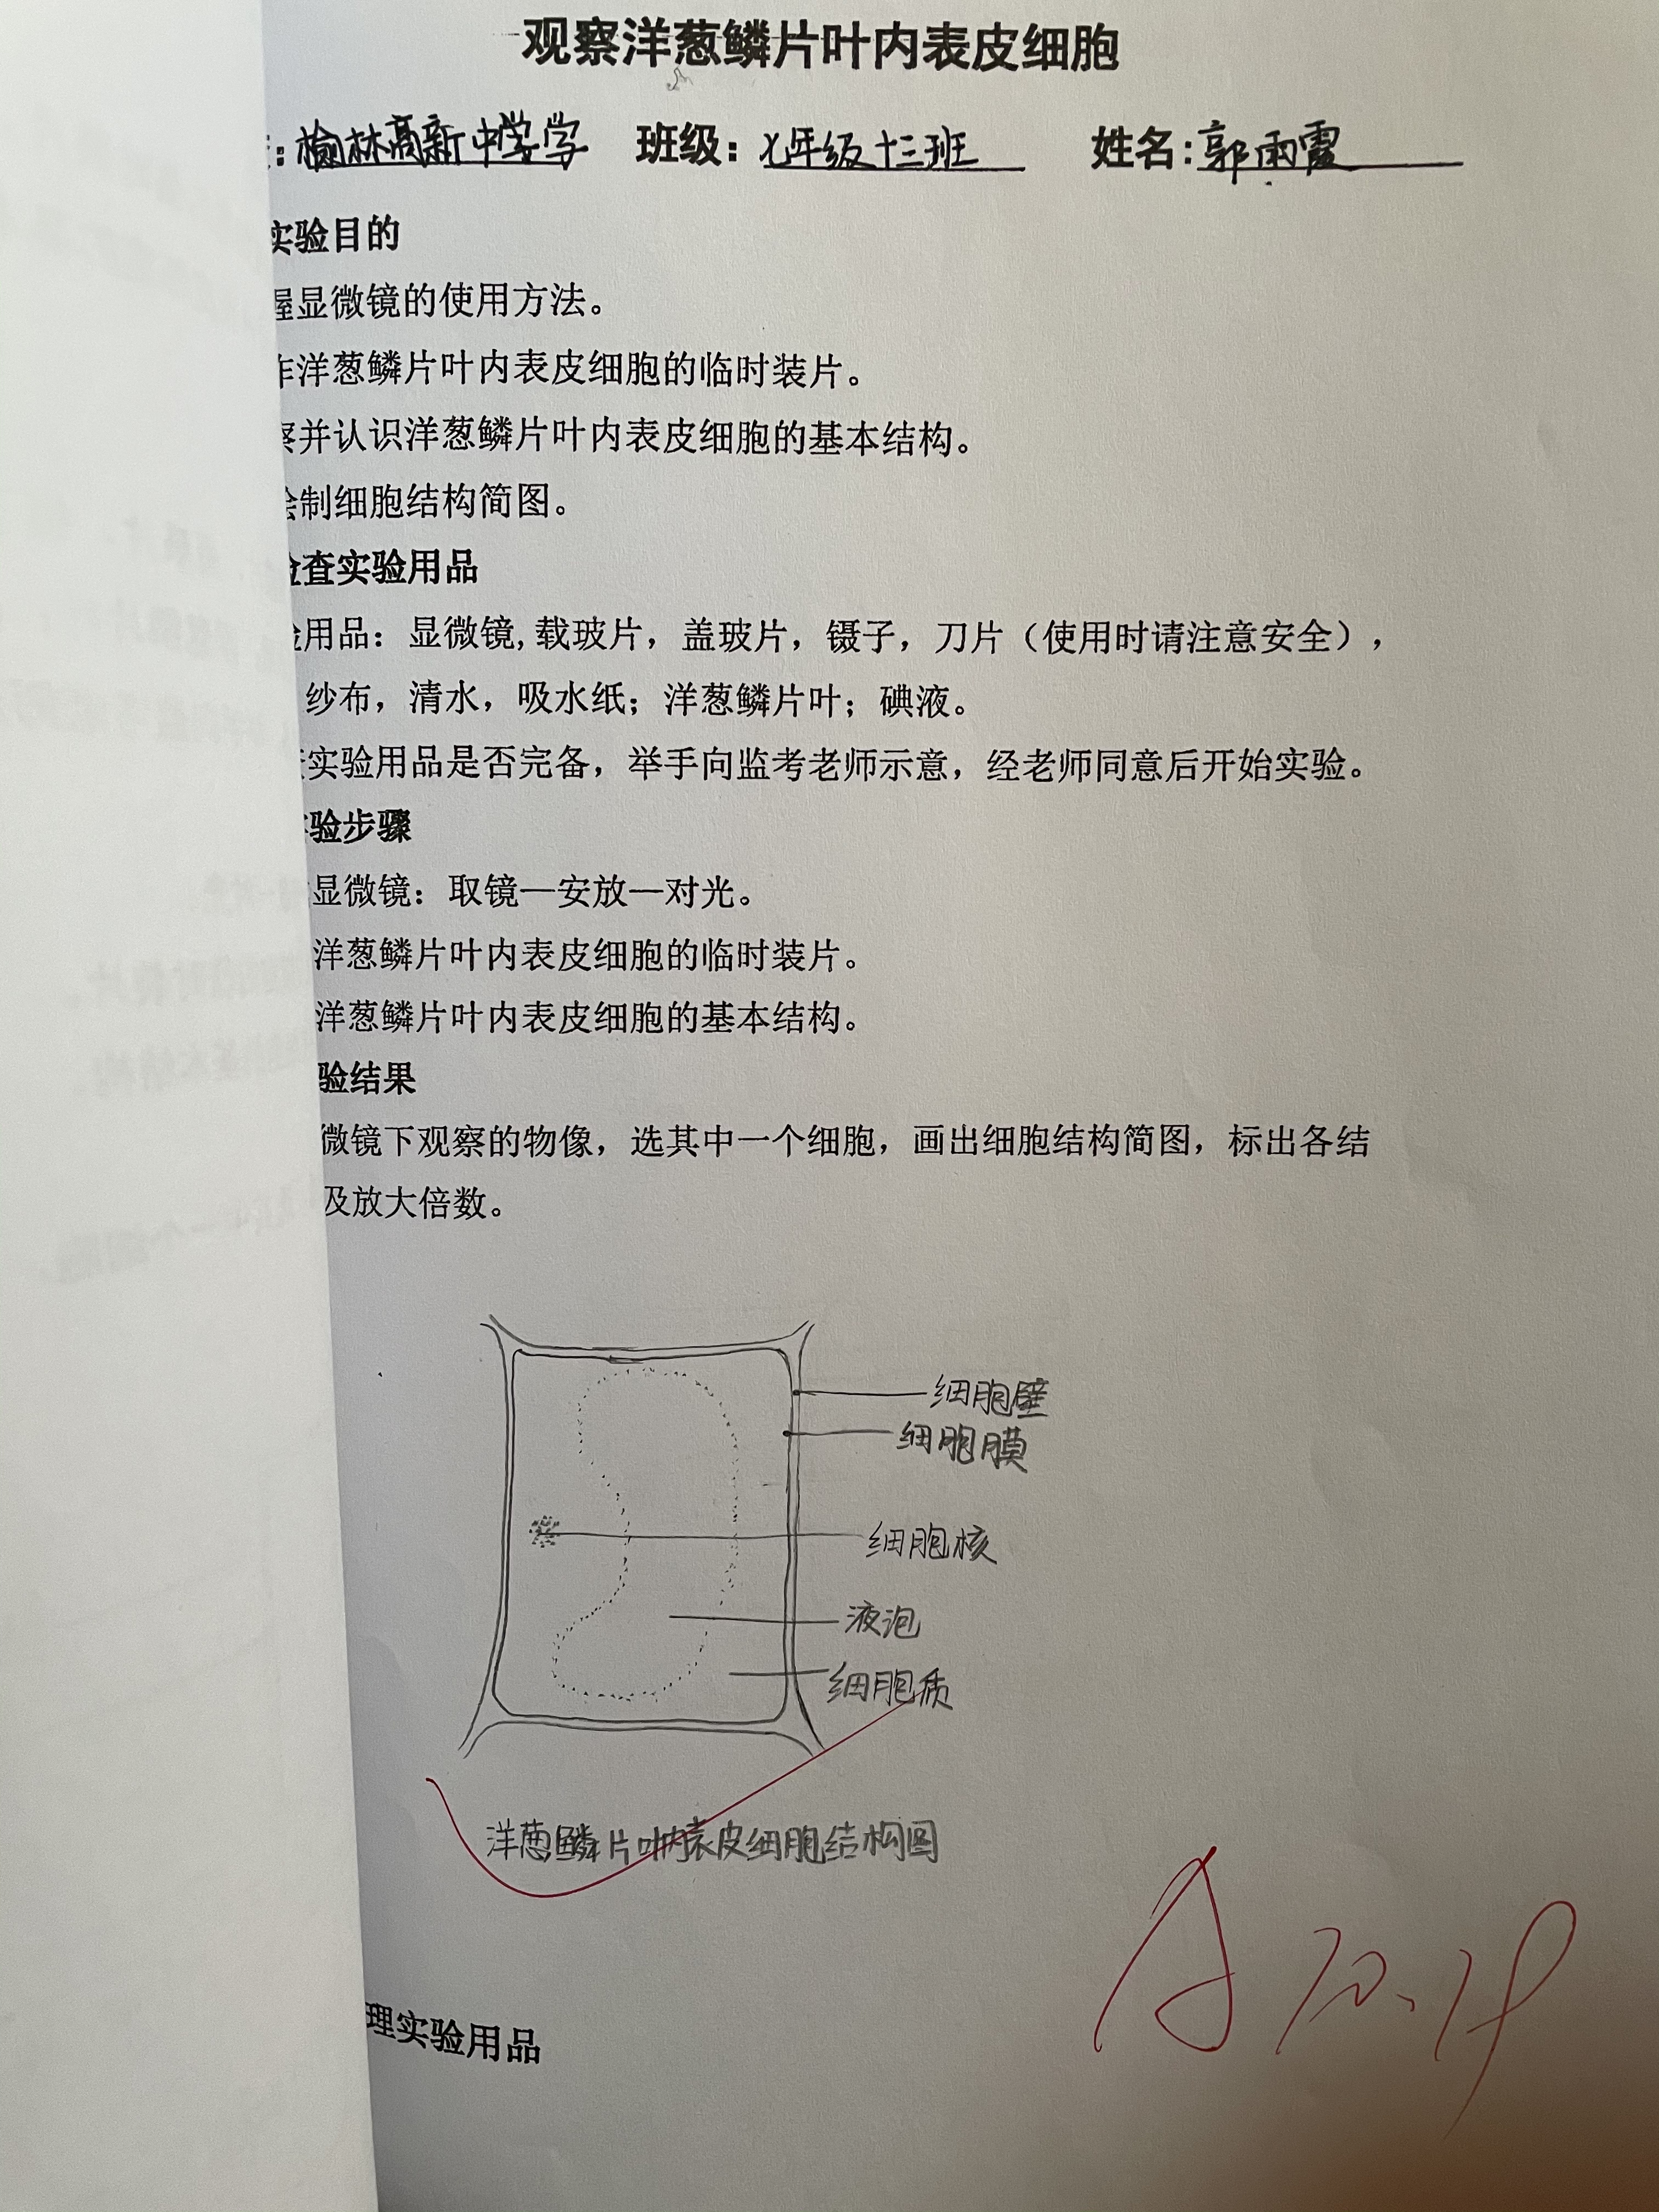 观察洋葱鳞片叶内表皮细胞
：榆林高新中学学 班级：七年级十三班 姓名：郭雨霞
实验目的
握显微镜的使用方法。
作洋葱鳞片叶内表皮细胞的临时装片。
察并认识洋葱鳞片叶内表皮细胞的基本结构。
绘制细胞结构简图。
检查实验用品
验用品：显微镜，载玻片，盖玻片，镊子，刀片（使用时请注意安全），
纱布，清水，吸水纸；洋葱鳞片叶；碘液。
实验用品是否完备，举手向监考老师示意，经老师同意后开始实验。
验步骤
显微镜：取镜—安放—对光。
洋葱鳞片叶内表皮细胞的临时装片。
洋葱鳞片叶内表皮细胞的基本结构。
验结果
微镜下观察的物像，选其中一个细胞，画出细胞结构简图，标出各结
及放大倍数。
细胞壁
细胞膜
细胞核
液泡
细胞质
洋葱鳞片叶内表皮细胞结构图
A
理实验用品